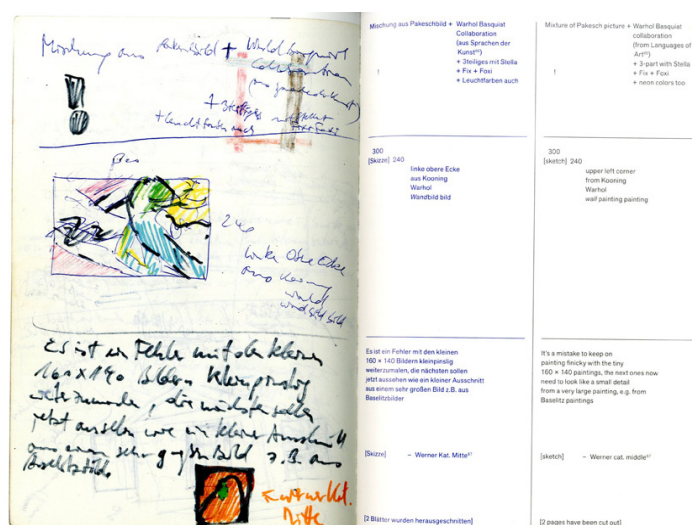 Mischung aus Pakeschbild + Warhol Basquiat
Collaboration
+ 3teiliges mit Stella
+ Leuchtfarben auch
Fix + Foxi
300
240
linke obere Ecke
aus Kooning
Warhol
Wandbild bild
Es ist ein Fehler mit den kleinen
160 x 140 Bildern kleinpinslig
weiterzumalen, die nächsten sollen
jetzt aussehen wie ein kleiner Ausschnitt
aus einem sehr großen Bild z.B. aus
Baselitzbilder
Werner Kat.
Mitte
Mischung aus Pakeschbild + Warhol Basquiat
Collaboration
(aus Sprachen der
Kunst
+ 3teiliges mit Stella
! + Fix + Foxi
+ Leuchtfarben auch
300
[Skizze] 240
linke obere Ecke
aus Kooning
Warhol
Wandbild bild
Es ist ein Fehler mit den kleinen
160 × 140 Bildern kleinpinslig
weiterzumalen, die nächsten sollen
jetzt aussehen wie ein kleiner Ausschnitt
aus einem sehr großen Bild z.B. aus
Baselitzbilder
[Skizze] – Werner Kat. Mitte
[2 Blätter wurden herausgeschnitten]
Mixture of Pakesch picture + Warhol Basquiat
collaboration
(from Languages of
Art
+ 3-part with Stella
! + Fix + Foxi
+ neon colors too
300
[sketch] 240
upper left corner
from Kooning
Warhol
wall painting painting
It's a mistake to keep on
painting finicky with the tiny
160 × 140 paintings, the next ones now
need to look like a small detail
from a very large painting, e.g. from
Baselitz paintings
[sketch] – Werner cat. middle
[2 pages have been cut out]